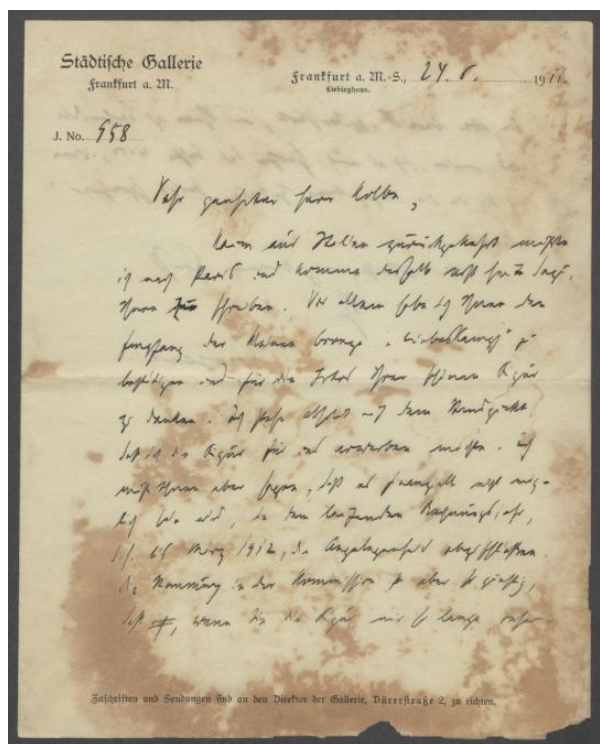 Städtische Gallerie
Frankfurt a. M.
Frankfurt a. M.-S., 24. 6. 1911.
Liebieghaus.
J. No. 958
Sehr geehrter Herr Kolbe,
Kaum aus Italien zurückgekehrt musste
ich nach Paris und komme deshalb erst heute dazu,
Ihnen zu schreiben. Vor allem habe ich Ihnen den
Empfang der kleinen Bronze „Liebeskampf" zu
bestätigen und für die Ihrer schönen Figur
zu danken. Ich stehe absolut auf dem Standpunkt
daß ich die Figur für uns erwerben möchte. Ich
muß Ihnen aber sagen, daß es finanziell nicht mög-
lich sein wird, in dem laufenden Rechnungsjahr,
d. h. bis März 1912, die Angelegenheit abzuschließen.
Die Stimmung in der Kommission ist aber so günstig,
daß, wenn Sie die Figur mir so lange reser-
Zuschriften und Sendungen sind an den Direktor der Gallerie, Dürerstraße 2, zu richten.